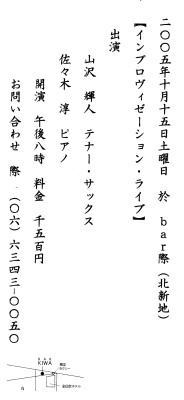 二〇〇五年十月十五日土曜日　於　ｂａｒ際（北新地）
【インプロヴィゼーション・ライブ】
出演
山沢　輝人　テナー・サックス
佐々木　淳　ピアノ
開演　午後八時　料金　千五百円
お問い合わせ　際　（〇六）六三四三−〇〇五〇
BAR
KIWA